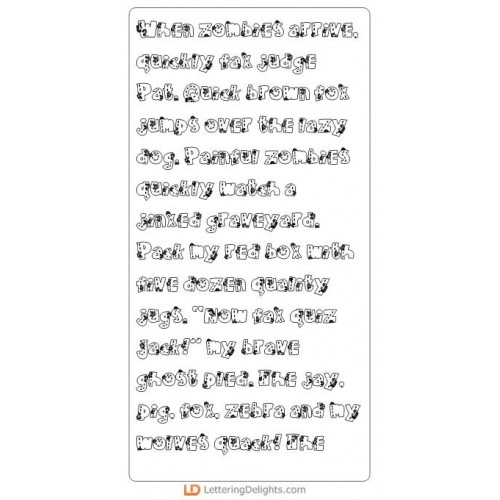 When zombies arrive,
quickly fax judge
Pat. Quick brown fox
jumps over the lazy
dog. Painful zombies
quickly watch a
jinxed graveyard.
Pack my red box with
five dozen quality
jugs. "Now fax quiz
Jack!" my brave
ghost pled. The jay,
pig, fox, zebra and my
wolves quack! The
LD LetteringDelights.com